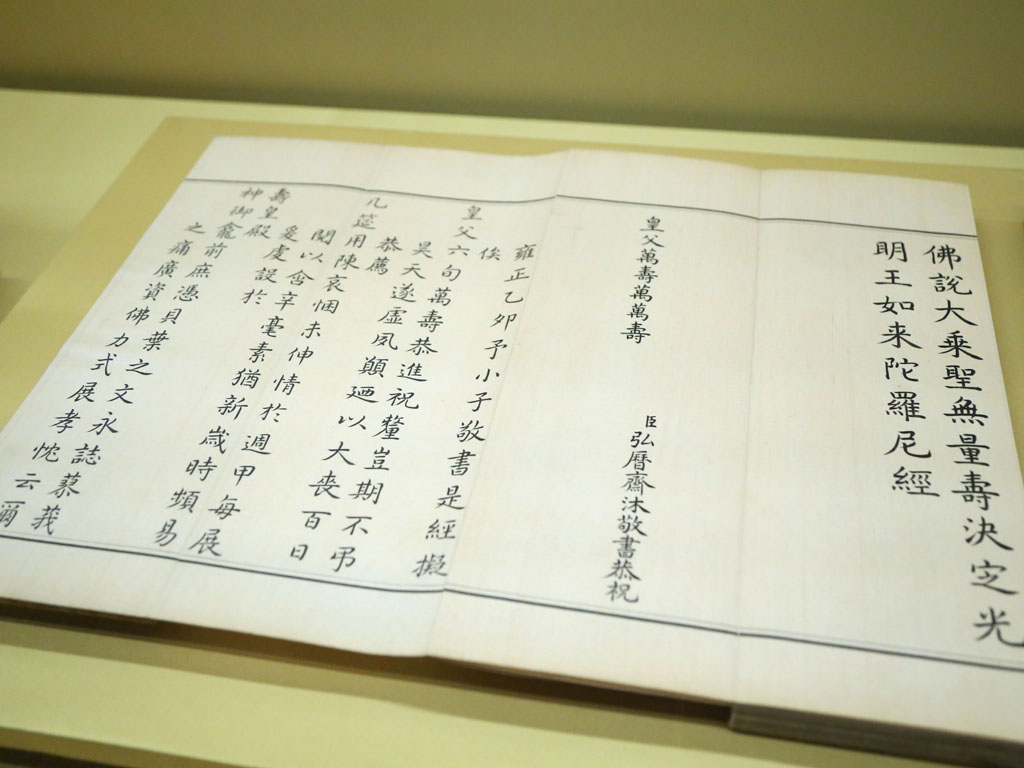 佛說大乘聖無量壽決定光
明王如来陀羅尼經
臣弘曆齋沐敬書恭祝
皇父萬壽萬萬壽
雍正乙卯予小子敬書是經擬
俟
皇父六旬萬壽恭進祝釐豈期不弔
昊天遂虛夙願廼以大喪百日
恭薦
几筵用陳哀悃未伸情於週甲每展
閱以含辛毫素猶新歲時頻易
爰虔設於
壽皇殿
神御龕前庶憑貝葉之文永誌蓼莪
之痛廣資佛力式展孝忱云爾